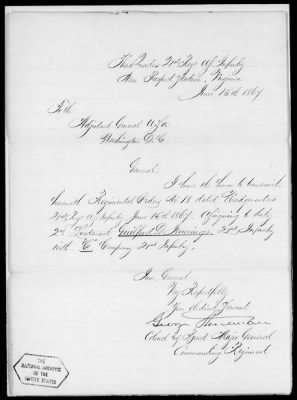 Head Quarters 2nd Regt US Infantry
Near Prospect Station, Virginia
June 15th 1867
To the
Adjutant General U.S.A
Washington D.C.
General,
I have the honor to transmit
herewith Regimental Orders No 18 dated Headquarters
2nd Regt US Infantry June 15th 1867. Assigning to duty
2nd Lieutenant Guilford D. Jennings 2nd Infantry
with "C" Company 2nd Infantry.
I am, General
Very Respectfully
Your obedient Servant
Colonel & Bvt Major General
Commanding Regiment
THE
NATIONAL ARCHIVES
OF THE
UNITED STATES